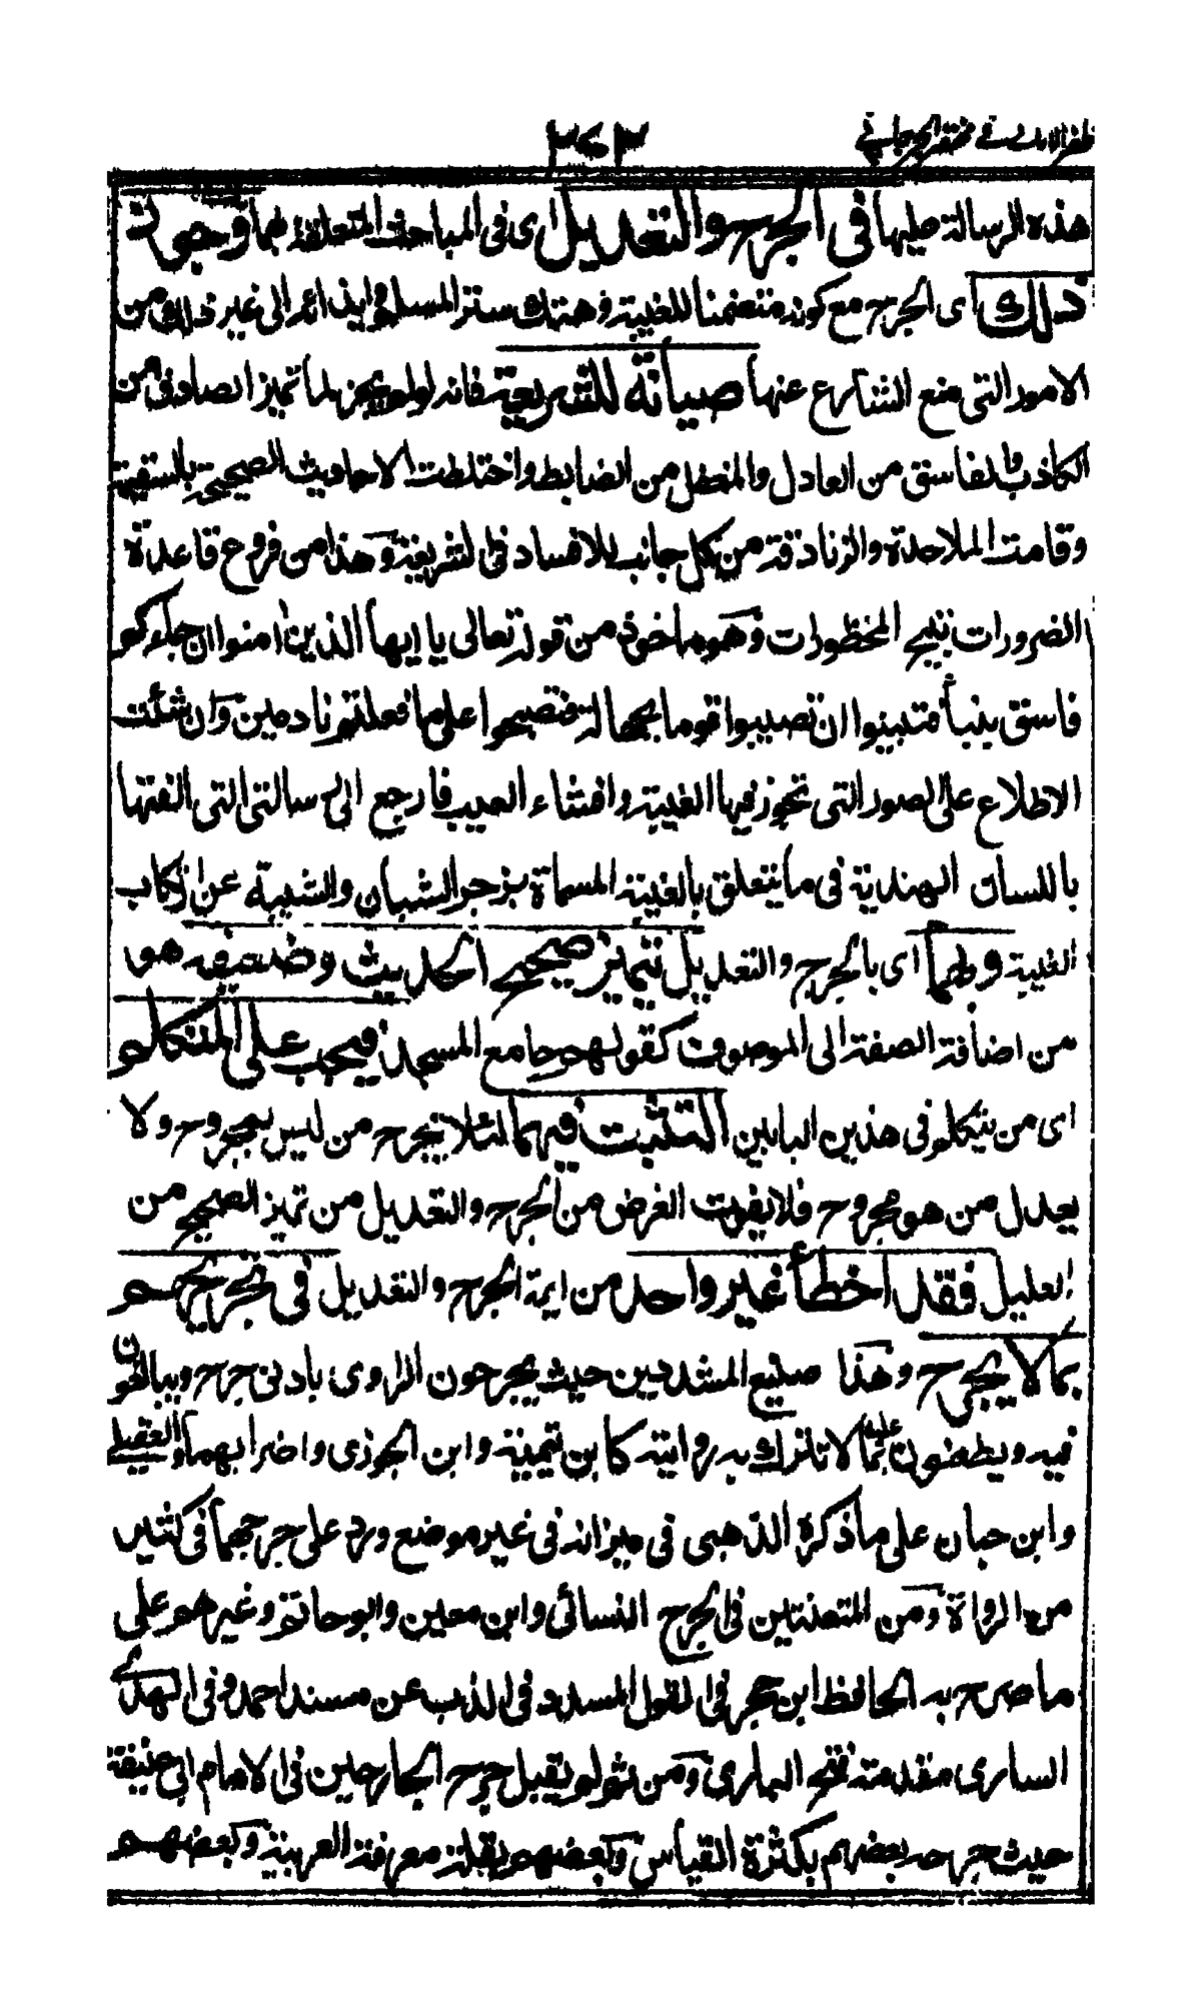 ظفر الامانی فی مختصر الجرجانی
٢٧٣
هذه الرسالة عليها فى الجرح والتعديل اى فى المباحث المتعلقة بهما وجوزت
ذلك اى الجرح مع كونه متضمنا للغيبة وهتك ستر المسلم وايذائه الى غير ذلك من
الامور التى منع الشارع عنها صيانة للشريعة فانه لو لم يجز لما تميز الصادق من
الكاذب والفاسق من العادل والمغفل من الضابط واختلطت الاحاديث الصحيحة بالسقيمة
وقامت الملاحدة والزنادقة من كل جانب للافساد فى الشريعة وهذا من فروع قاعدة
الضرورات تبيح المحظورات وهو ماخوذ من قوله تعالى يا ايها الذين امنوا ان جاءكم
فاسق بنبأ فتبينوا ان تصيبوا قوما بجهالة فتصبحوا على ما فعلتم نادمين وان شئت
الاطلاع على الصور التى تجوز فيها الغيبة وافشاء العيب فارجع الى رسالتى التى الفتها
باللسان الهندية فى ما يتعلق بالغيبة المسماة بزجر الشبان والشيبة عن ارتكاب
الغيبة وبهما اى بالجرح والتعديل يتميز صحيح الحديث وضعيفه هو
من اضافة الصفة الى الموصوف كقولهم جامع المسجد فيجب على المتكلم
اى من يتكلم فى هذين البابين التثبت فيهما لئلا يجرح من ليس بمجروح ولا
يعدل من هو مجروح فلا يفوت الغرض من الجرح والتعديل من تميز الصحيح من
العليل فقد اخطأ غير واحد من ايمة الجرح والتعديل فى تجريحهم
بما لا يجرح وهذا صنيع المشددين حيث يجرحون الراوى بادنى جرح ويبالغون
فيه ويطعنون عليه بما لا تترك به روايته كابن تيمية وابن الجوزى واضرابهما والعقيلى
وابن حبان على ما ذكره الذهبى فى ميزانه فى غير موضع ورد على جرحهما فى كثير
من الرواة ومن المتعنتين فى الجرح النسائى وابن معين وابو حاتم وغيرهم على
ما صرح به الحافظ ابن حجر فى القول المسدد فى الذب عن مسند احمد وفى الهدى
السارى مقدمة فتح البارى ومن ثم لم يقبل جرح الجارحين فى الامام ابى حنيفة
حيث جرحه بعضهم بكثرة القياس وبعضهم بقلة معرفة العربية وبعضهم